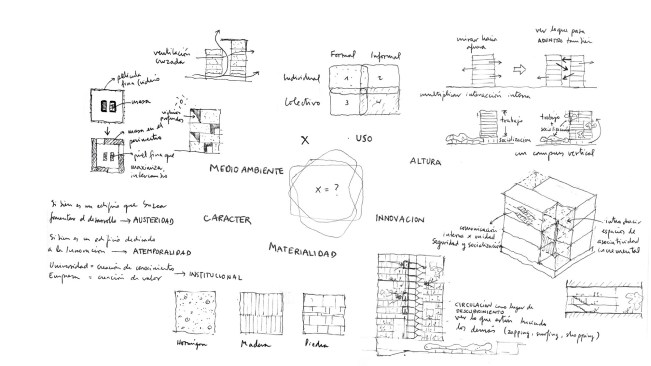 ventilación
cruzada
película
fina (vidrio)
masa
vidrios
profundos
masa en el
perímetro
piel fina que
maximiza
intercambio
Formal Informal
Individual
Colectivo
1 2
3 4
mirar hacia
afuera
ver lo que pasa
ADENTRO también
multiplicar interacción interna
trabajo
socialización
trabajo
+
socialización
un campus vertical
X
USO
MEDIO AMBIENTE
ALTURA
X = ?
CARACTER
INNOVACION
MATERIALIDAD
Si bien es un edificio que busca
fomentar el desarrollo → AUSTERIDAD
Si bien es un edificio dedicado
a la Innovación → ATEMPORALIDAD
Universidad = creación de conocimiento
Empresa = creación de valor → INSTITUCIONAL
Hormigon
Madera
Piedra
comunicación
interna x unidad
Seguridad y socialización
introducir
espacios de
asociatividad
incremental
CIRCULACION como lugar de
DESCUBRIMIENTO
ver lo que están haciendo
los demás (zapping, surfing, shopping)